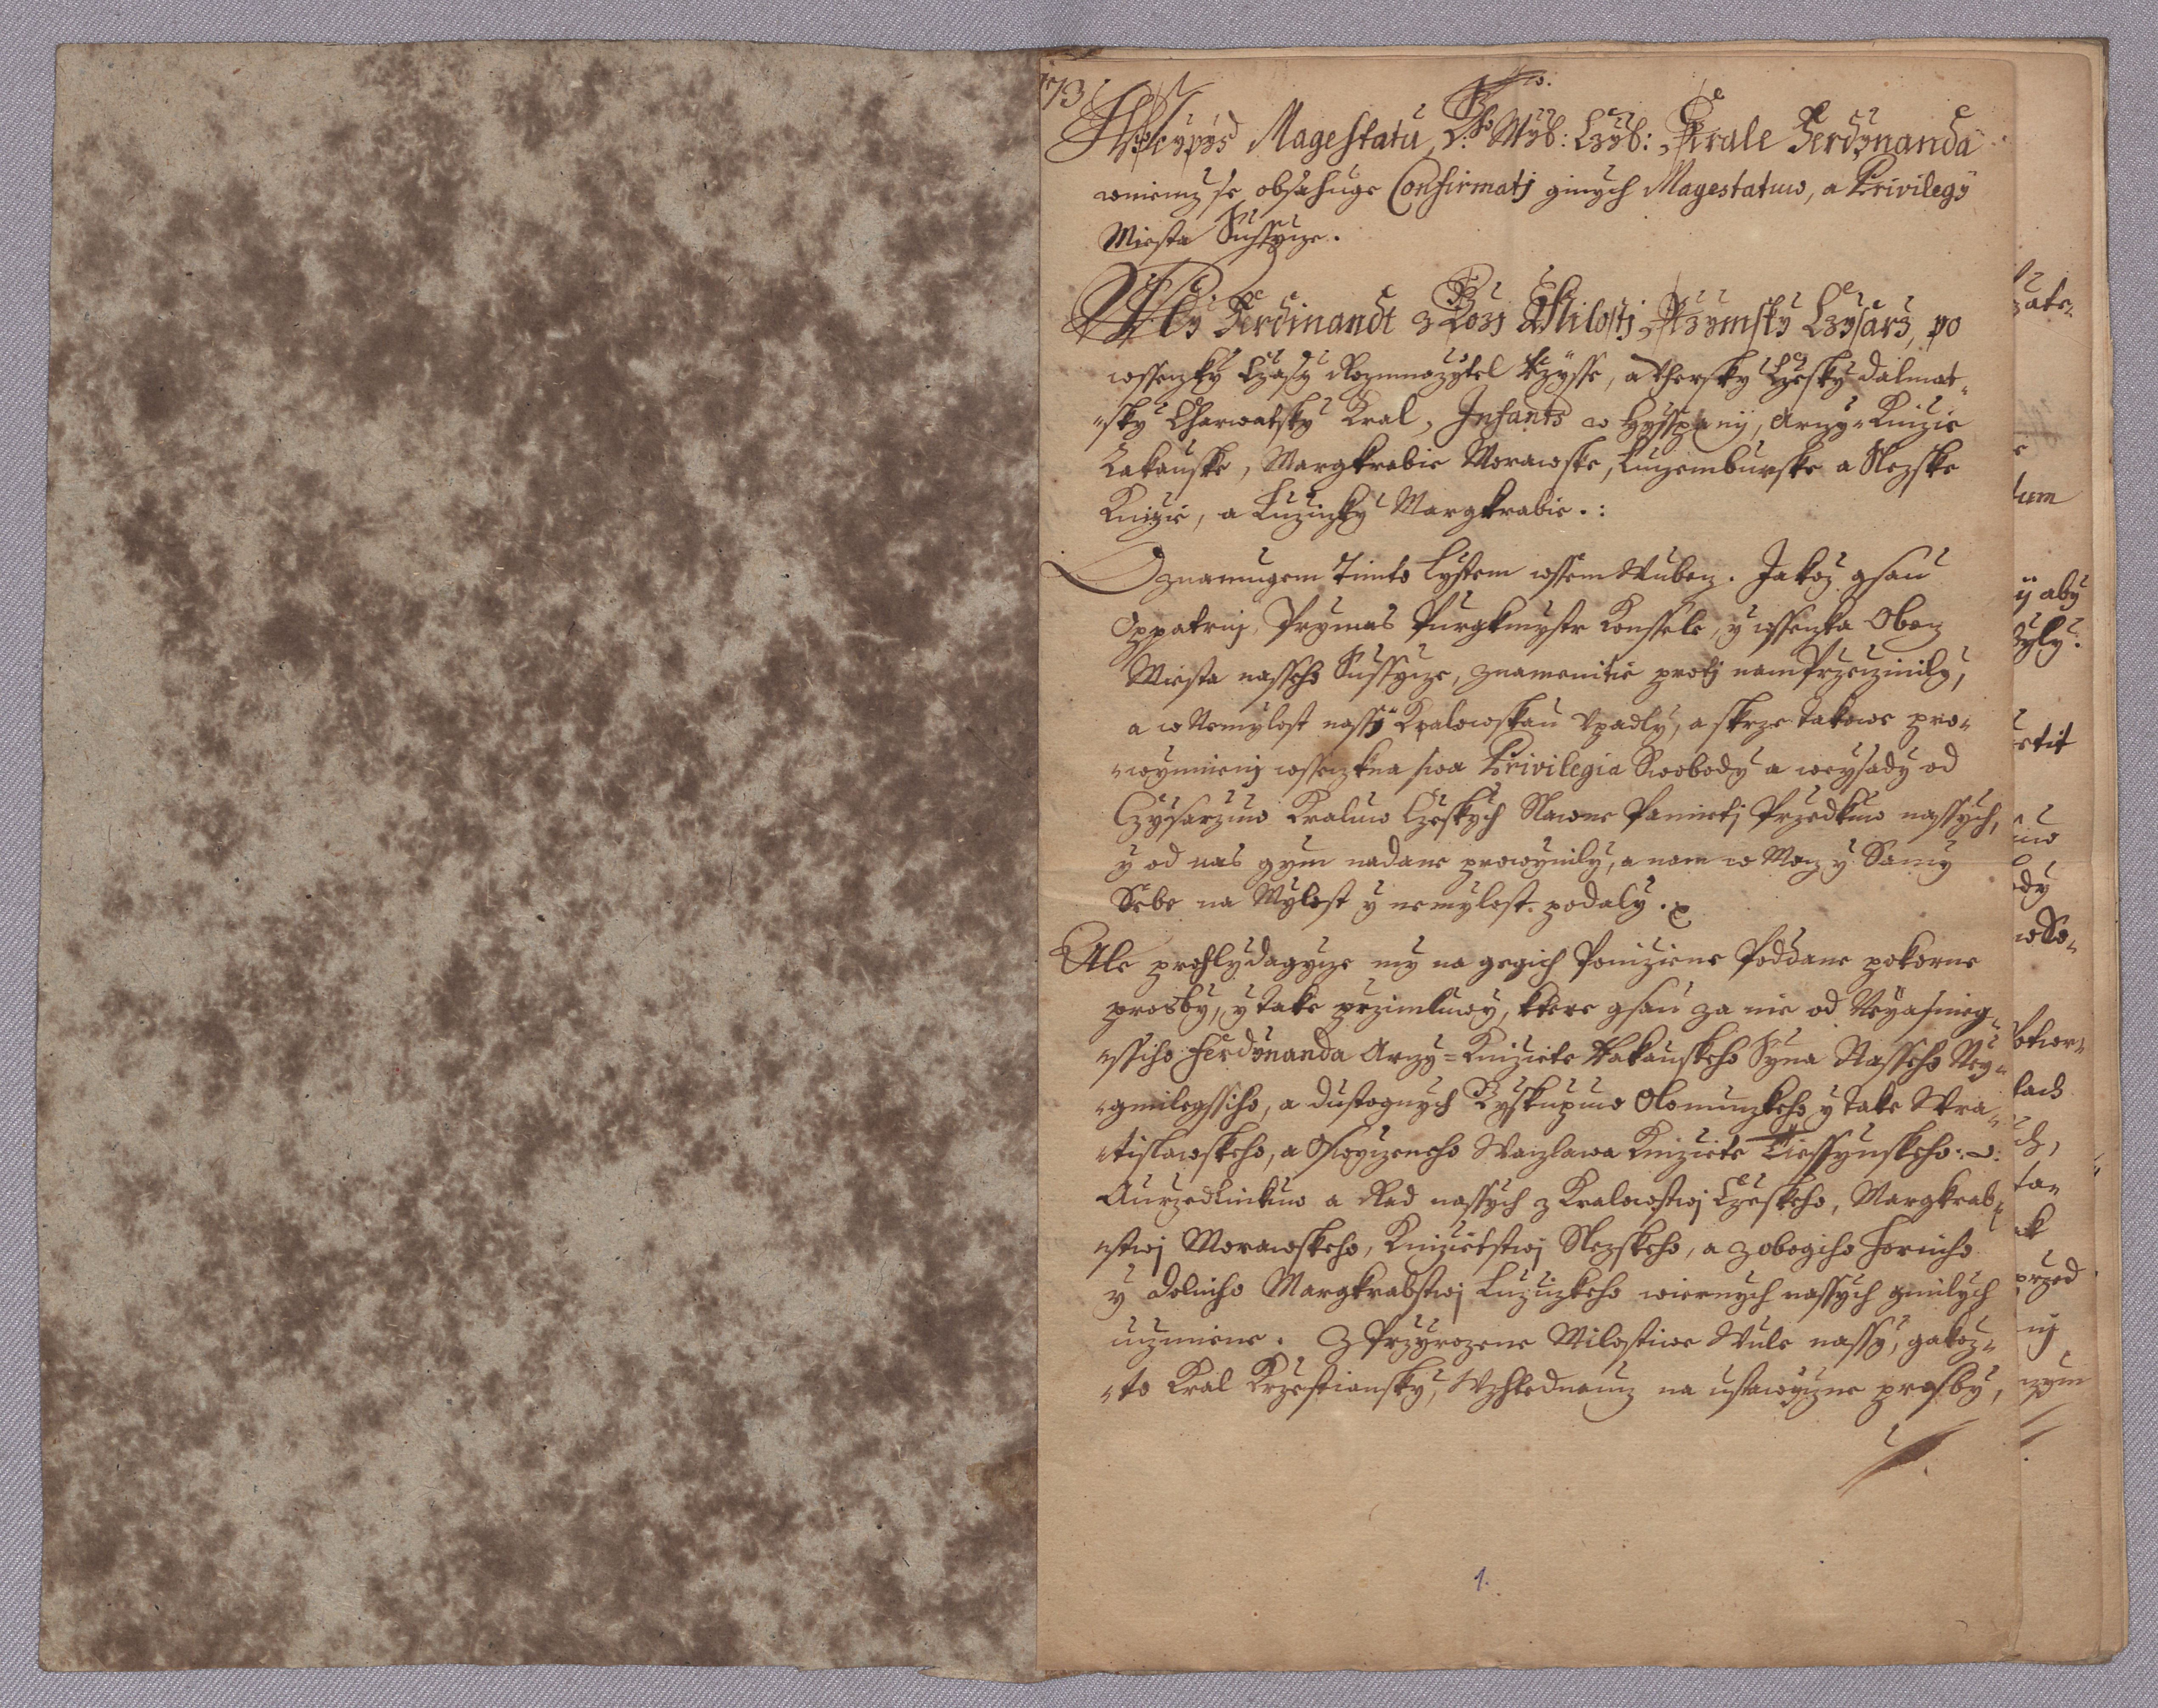 73
Przypys Magestatu, Wyß: Czyß: Krale Ferdynanda
wniemz se obsahuge Confirmatj ginych Magestatuw, a Privilegÿ
Miesta Sussycze.
My Ferdinandt z Bozj Milostj Rzymsky Czysarz, po
wsseczky Czasy Rozmnozytel Rzysse, a Uhersky Czesky Dalmat-
-sky Charwatsky Kral, Infants w Hysspanij, Arczy-Knizie
Rakauske, Margkrabie Morawske, Luczemburske a Slezske
Knizie, a Luziczky Margkrabie.:
Oznamugem Timto Lystem wssem Wubecz. Jakoz gsau
Oppatrnj, Prymas Purgkmystr Konssele, y wsseczka Obecz
Miesta nasseho Sussycze, znamenitie protj nam Przeczinily,
a w Nemylost nassy Kralowskau Upadly, a skrze takowe pro-
-wynnienj wsseczkna swa Privilegia Swobody a weysady od
Czysarzuw Kraluw Czeskych Slawne Pamietj Przedkuw nassych,
y od nas gym nadane prowynily, a nam w Mocz y Samy
Sebe na Mylost y nemylost podaly.
Ale prohlydagycze my na gegich Ponizene Poddane pokorne
prosby, y take przimluwy, ktere gsau za nie od Neyasnieg-
-ssiho Ferdynanda Arczy=Kniziete Rakauskeho Syna Nasseho Ney-
-gmilegssiho, a dustognych Byskupuw Olomuczkeho y take Wra-
-tislawskeho, a Oswyczeneho Waczlawa Kniziete Tiessynskeho:
Aurzedlnikuw a Rad nassych z Kralowstwj Czeskeho, Margkrab-
-stwj Morawskeho, Knizietstwj Slezskeho, a z obogiho Horniho
y Dolniho Margkrabstwj Luziczkeho wiernych nassych gmilych
uczniene. Z Przyrozene Milostiwe Wule nassy, gakoz-
-to Kral Krzestiansky, Wzhlednaucz na ustawyczne prosby,
1.